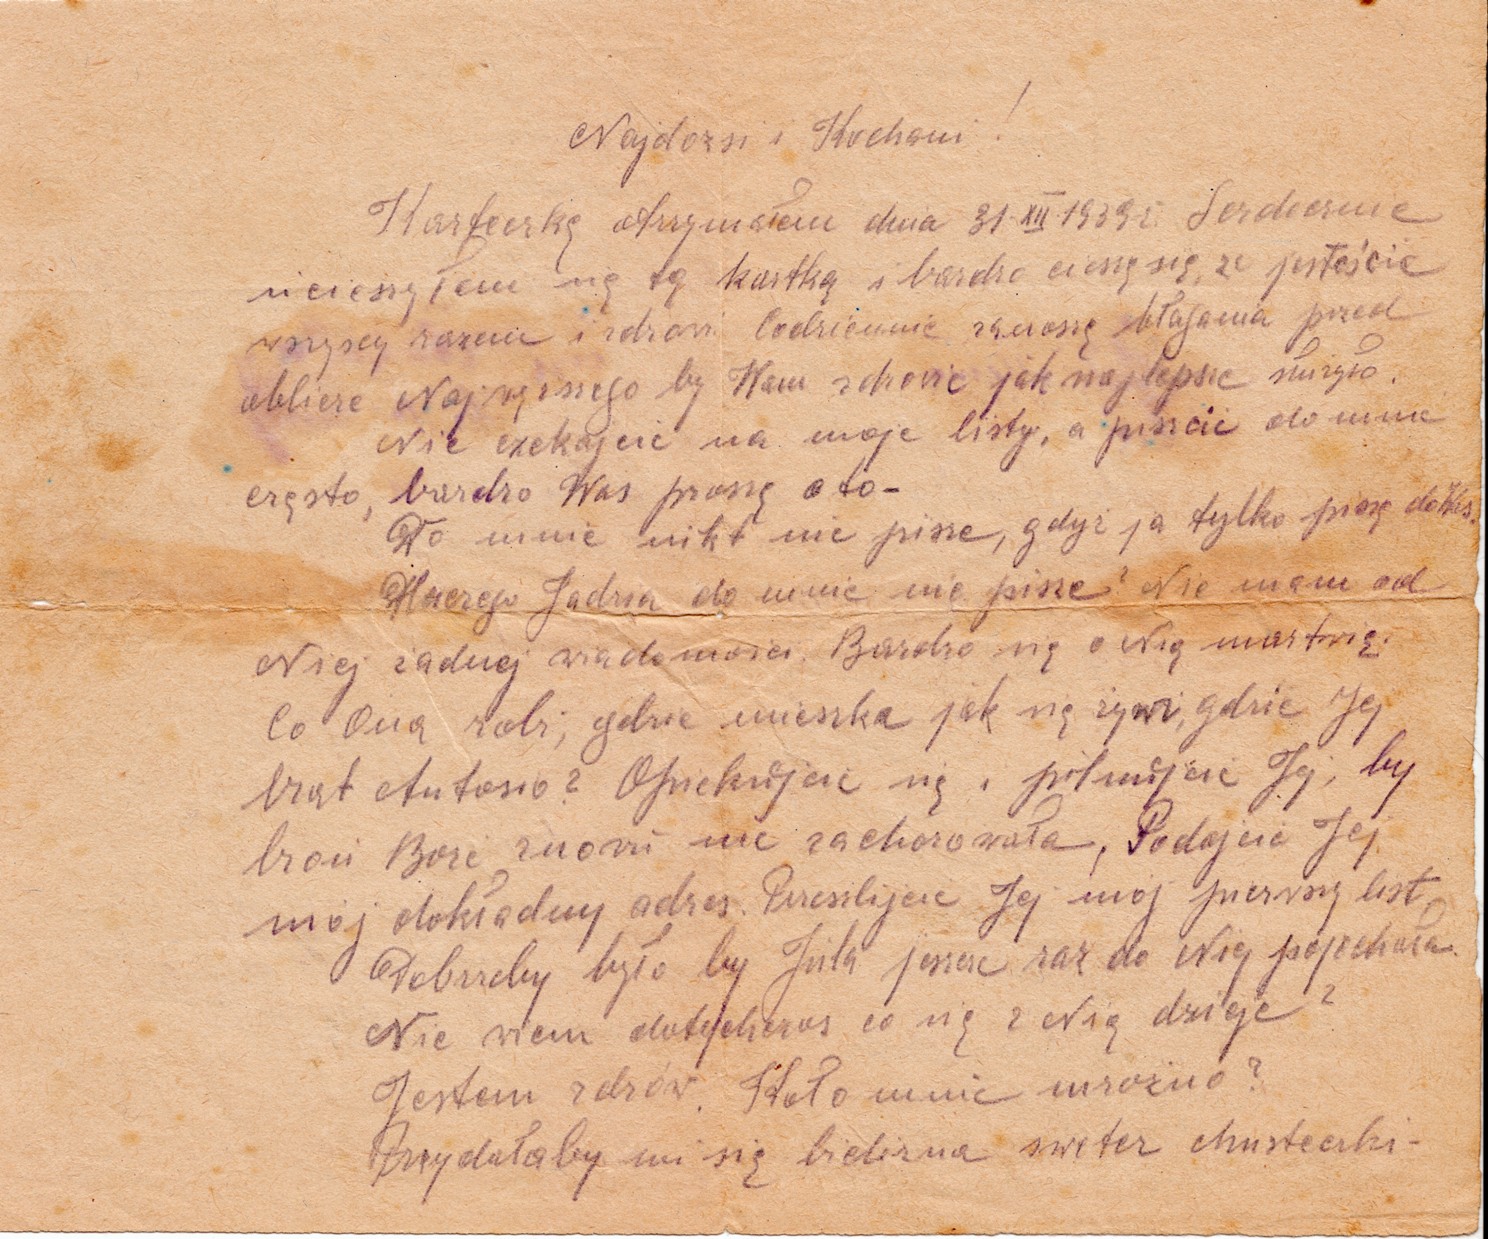 Najdożsi i Kochani!
Karteczkę otrzymałem dnia 31.XII.1939r. Serdecznie
ucieszyłem się tą kartką i bardzo cieszę się, że jesteście
wszyscy razem i zdrowi Codziennie zanoszę błagania przed
oblicze Najwyższego by Wam zdrowie jak najlepsze służyło.
Nie czekajcie na moje listy, a piszcie do mnie
często, bardzo Was proszę o to-
Do mnie nikt nie pisze, gdyż ja tylko piszę do Was.
Dlaczego Jadzia do mnie nie pisze? Nie mam od
Niej żadnej wiadomości. Bardzo się o Nią martwię.
Co Ona robi, gdzie mieszka jak się żywi, gdzie Jej
brat Antosio? Opiekujcie się i pilnujcie Jej, by
broń Boże znowu nie zachorowała, Podajcie Jej
mój dokładny adres. Prześlijcie Jej mój pierwszy list.
Dobrzeby było by Jula jeszcze raz do Niej pojechała.
Nie wiem dotychczas co się z Nią dzieje?
Jestem zdrów. Koło mnie mroźno?
Przydałaby mi się bielizna sweter chusteczki-